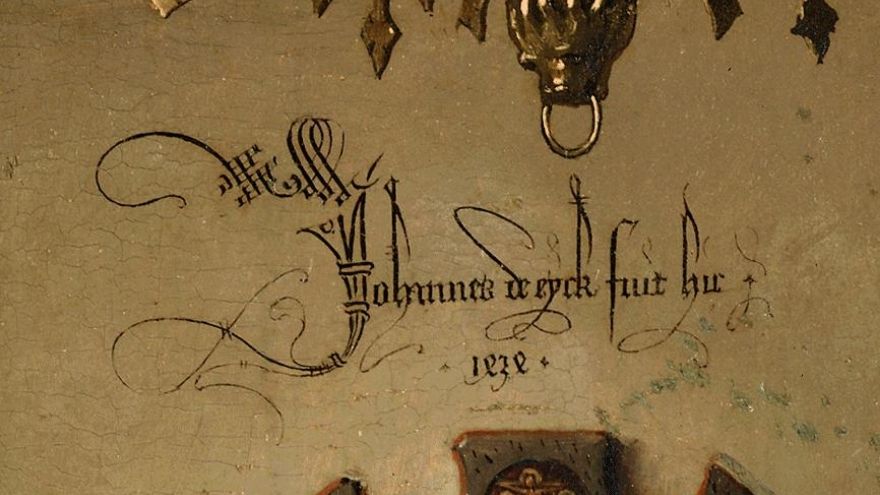 Johannes de eyck fuit hic
1434